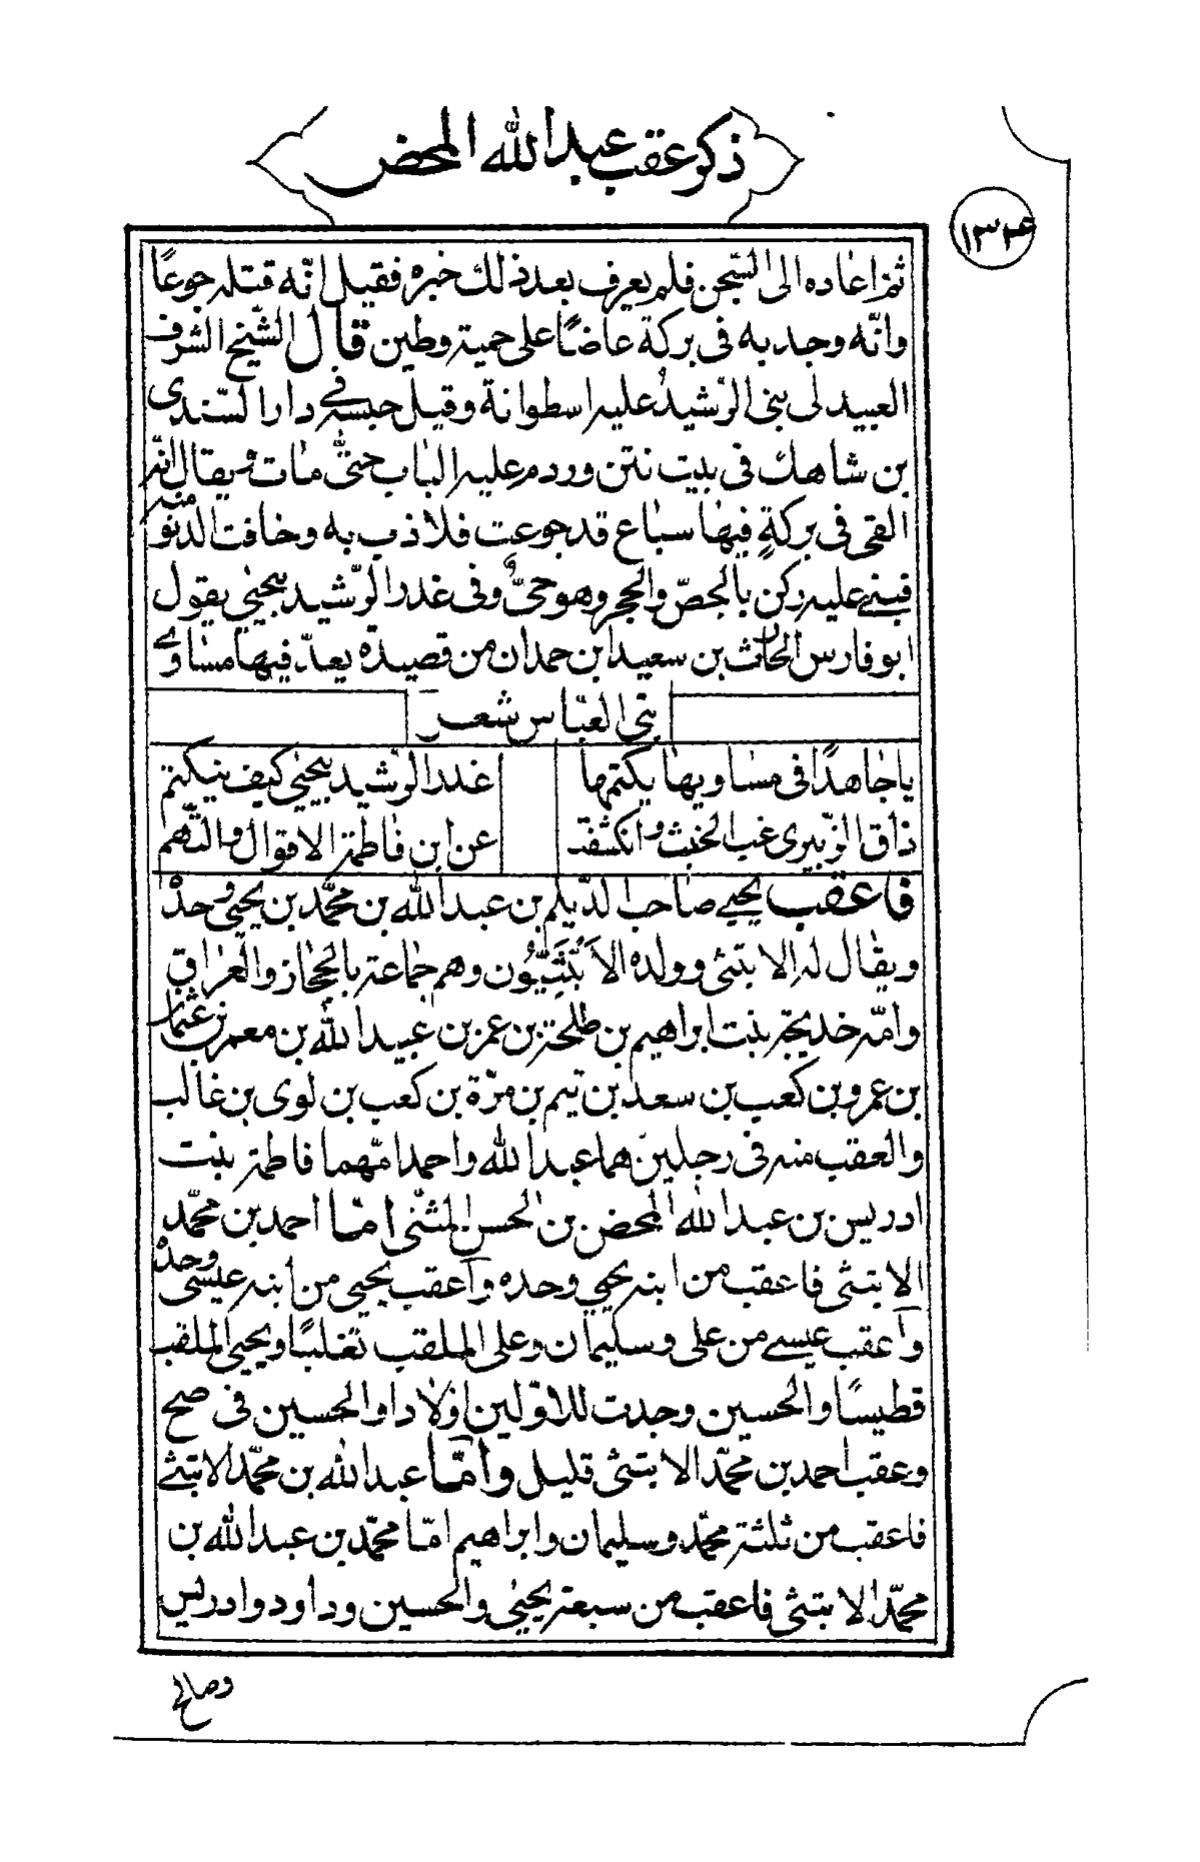 ذكر عقب عبد الله المحض
١٣٤
ثم اعاده الى السجن فلم يعرف بعد ذلك خبره فقيل انّه قتله جوعًا
وانّه وجد به فى بركة عاضًا على حمية وطين قال الشّيخ الشرف
العبيدلى بنى الرّشيد عليه اسطوانة وقيل حبسه فى دار السّندى
بن شاهك فى بيت نتن وردم عليه الباب حتّى مات ويقال انّه
القى فى بركةٍ فيها سباع قد جوعت فلاذت به وخافت الدنو منه
فبنى عليه ركن بالجصّ والحجر وهو حىٌّ وفى غدر الرّشيد بيحيى يقول
ابو فارس الحارث بن سعيد ابن حمدان من قصيدة يعدّ فيها مساوى
بنى العبّاس شعر
يا جاهدًا فى مساويها يكتمها غدر الرّشيد بيحيى كيف ينكتم
ذاق الزّبيرى غب الحنث وانكشفت عن ابن فاطمة الاقوال والتّهم
فاعقب يحيى صاحب الدّيلم بن عبد الله بن محمّد بن يحيى وحدهُ
ويقال له الابتثى وولده الاَبْتَثِيُّون وهم جماعة بالحجاز والعراق
وامّه خديجة بنت ابراهيم بن طلحة بن عمر بن عبيد الله بن معمر بن عثمان
بن عمرو بن كعب بن سعد بن تيم بن مرّة بن كعب بن لوى بن غالب
والعقب منه فى رجلين هما عبد الله واحمد امّهما فاطمة بنت
ادريس بن عبد الله المحض بن الحسن المثنّى امّا احمد بن محمّد
الابتثى فاعقب من ابنه يحيى وحده وأعقب يحيى من ابنه عيسى وحدهُ
وأعقب عيسى من على وسليمان وعلى الملقب تغلبًا ويحيى الملقب
قطيسًا والحسين وجدت للاوّلين اولادا والحسين فى صح
وعقب احمد بن محمّد الابتثى قليل وأمّا عبد الله بن محمّد الابتثى
فاعقب من ثلثة محمّد وسليمان وابراهيم امّا محمّد بن عبد الله بن
محمّد الابتثى فاعقب من سبعة يحيى والحسين وداود وادريس
وصالح